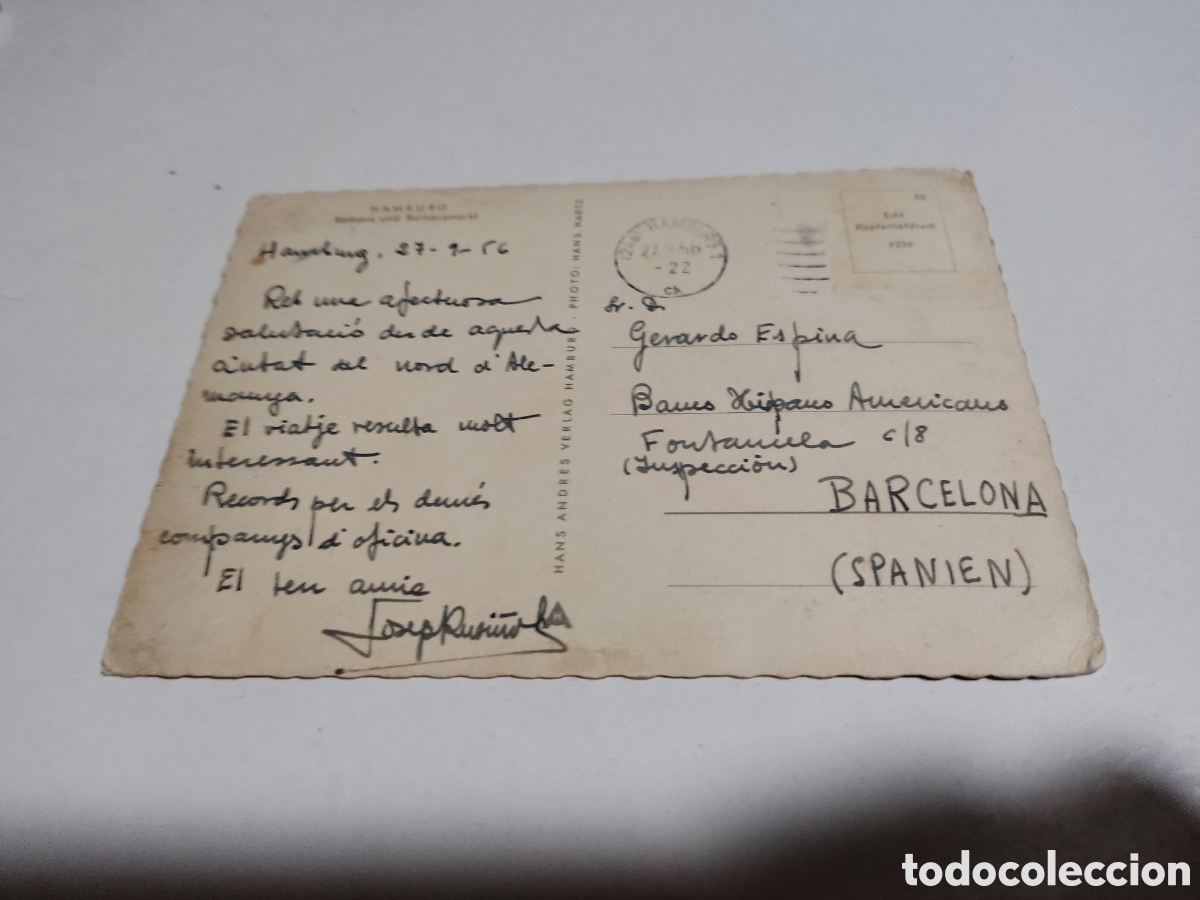 HAMBURG
Rathaus und Rathausmarkt
Hamburg. 27-9-56
Reb una afectuosa
salutació des de aquesta
ciutat del nord d'Ale-
manya.
El viatje resulta molt
interessant.
Records per els demés
companys d'oficina.
El teu amic
Josep
HANS ANDRES VERLAG HAMBURG · PHOTO: HANS HARTZ
HAMBURG 1
27.9.56
- 22
ch
Echt
Kupfertiefdruck
9236
Sr. D.
Gerardo Espina
Banco Hispano Americano
Fontanella 6/8
(Inspección)
BARCELONA
(SPANIEN)
todocoleccion